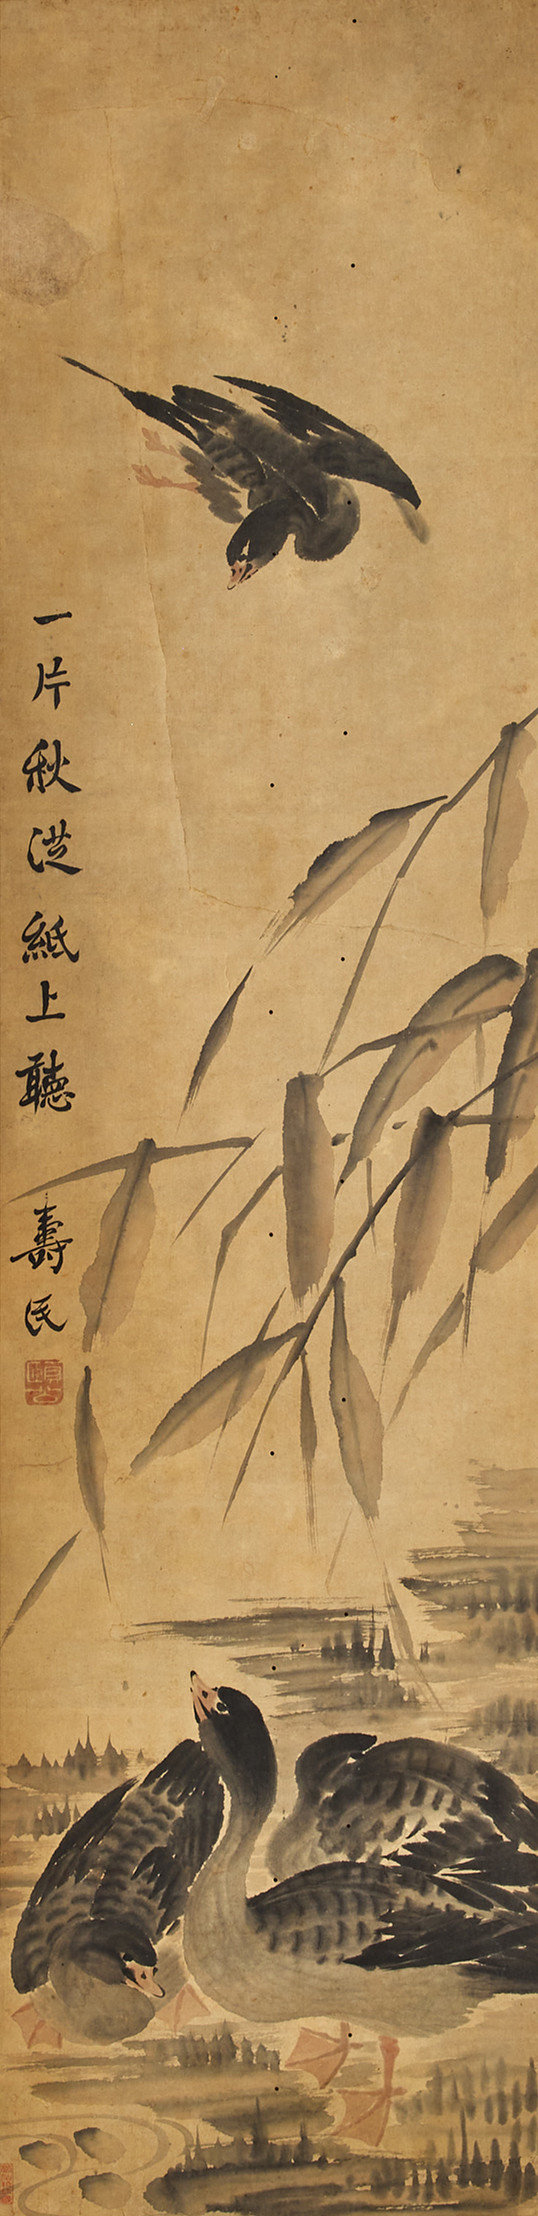 一片秋紙上聽
壽民
頤公